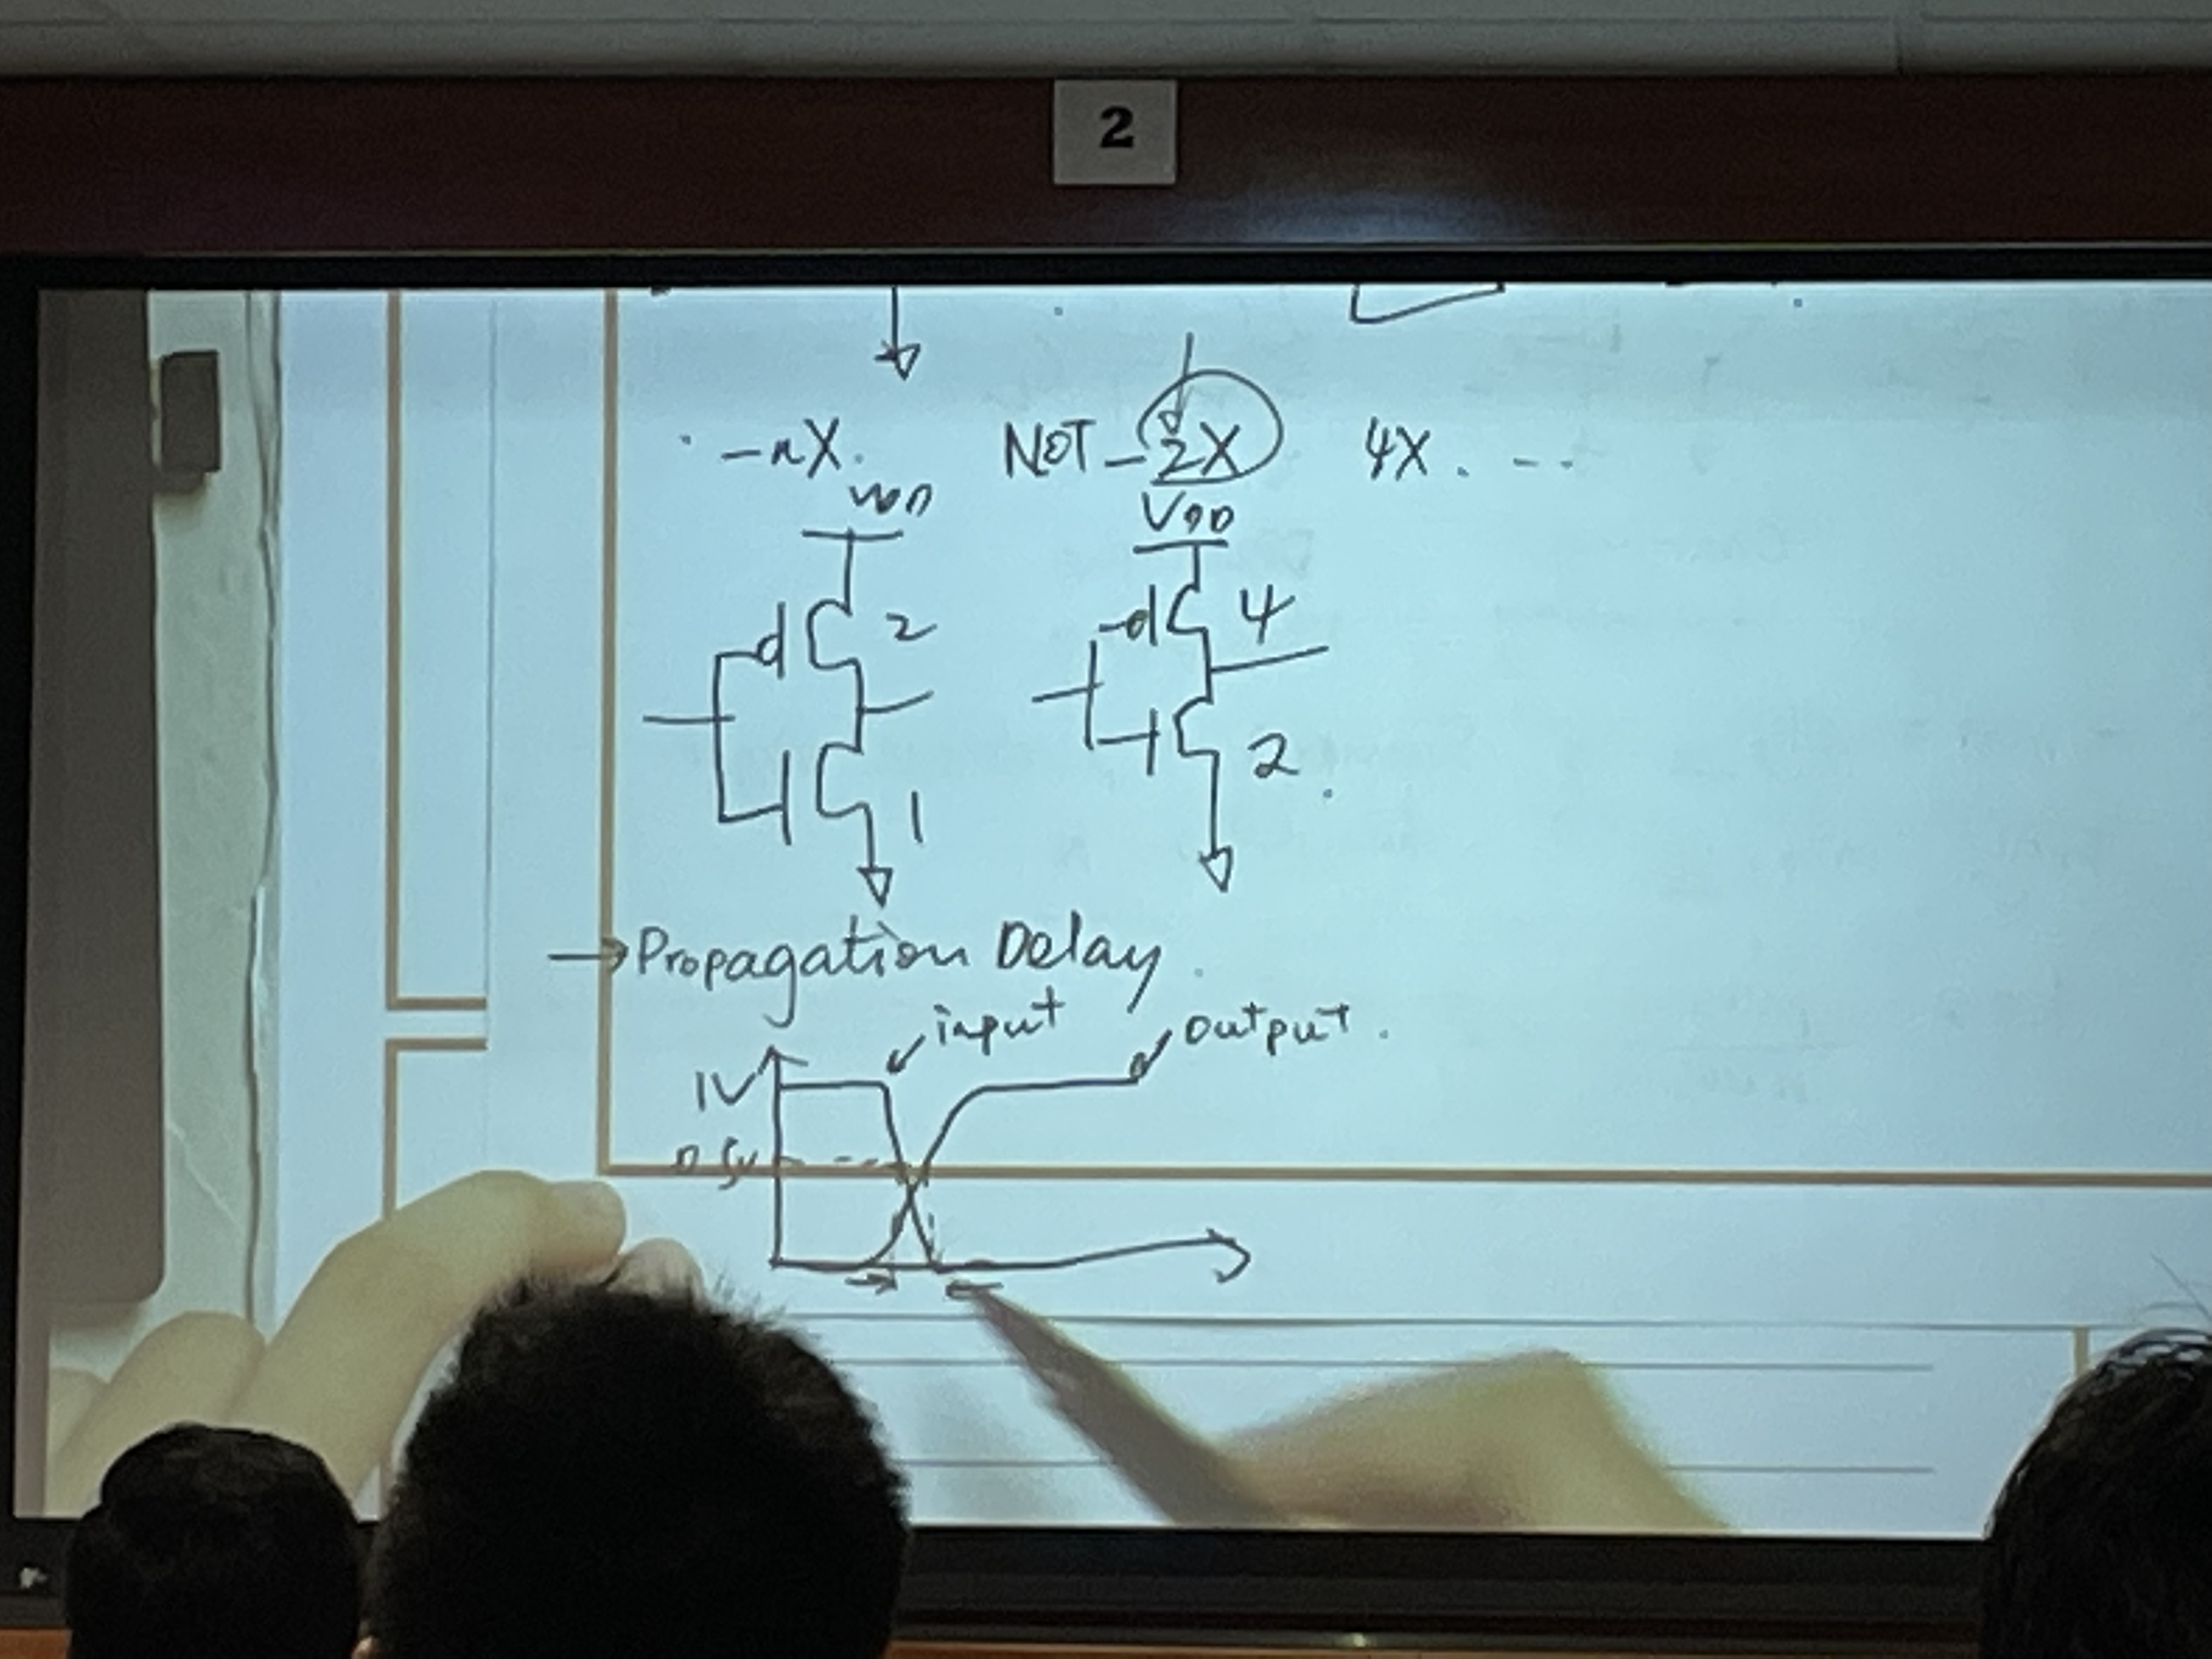 2
-nX. NOT-2X 4X. ---
VDD VDD
2 4
1 2
→Propagation Delay.
input output.
1V
0.5V